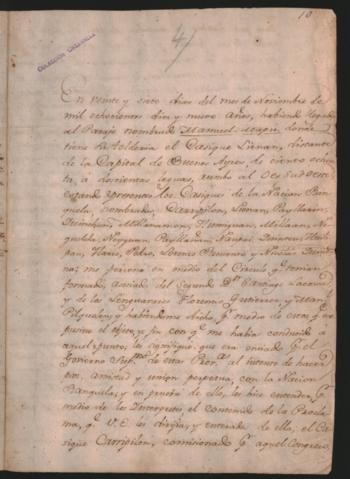 10
4
COLECCION CARRANZA
En veinte y siete dias del mes de Noviembre de
mil ochocientos diez y nueve años, habiendo llegado
al Parage nombrado Mamuel Mapu, donde
tiene su Tolderia el Casique Lienan, distante
de la Capital de Buenos Ayres, de ciento ochen
ta, à doscientas leguas, rumbo al Oes Sudoeste
estando presentes los Casiques de la Nacion Ran
quela, nombrados Carripilon, Lienan, Payllarin,
Millanamon, Millaan, Ne
Neyguan, Payllañan, Naupai,
pan, Flores, Pablo, Lorenzo
na; me persone en medio del Circulo qe tenian
formado, asociado del Segundo Dn Santiago Lacasa
y de los Lenguarases Florencio Gutierrez, y Man
Pilquelen y habiendome dicho pr medio de estos qe ex
pusiese el objeto, ò fin con qe me havia conducido à
aquel punto, les signifiqué que era enviado pr el
Govierno Supmo de estas Provas al intento de hacer
paz, amistad y union perpetua, con la Nacion
Ranquela, y en prueba de ello, les hice entender pr
medio de los Interpretes el contenido de la Procla
ma, qe V. E. les dirijia, y enterados de ella, el Ca
sique Carripilon, comisionado pr aquel Congreso,